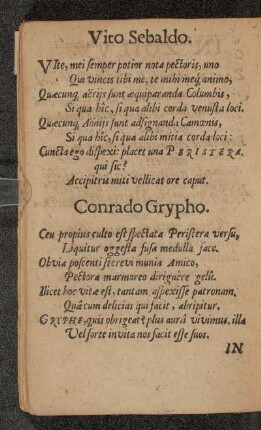 Vito Sebaldo.
VIte, mei semper potior nota pectoris, uno
Qui vincis tibi me, te mihi meq́; animo,
Quæcunq; aërijs sunt æquiparanda Columbis,
Si qua hic, si qua alibi corda venusta loci.
Quæcunq; Aönijs sunt adsignanda Camœnis,
Si qua hic, si qua alibi mitia corda loci:
Cuncta ego dispexi: placet una PERISTERA.
qui sic?
Accipitris miti vellicat ore caput.
Conrado Grypho.
Ceu propius culto est spectata Peristera versu,
Liquitur oggesta fusa medulla face.
Obvia poscenti si crevi munia Amico,
Pectora marmoreo diriguêre gelu.
Ilicet hoc vitæ est, tantam aspexisse patronam.
Quâ cum delicias qui facit, abripitur.
GRYPHE, quis obrigeat? plus aurâ vivimus. illa
Vel forte invita nos facit esse suos.
IN